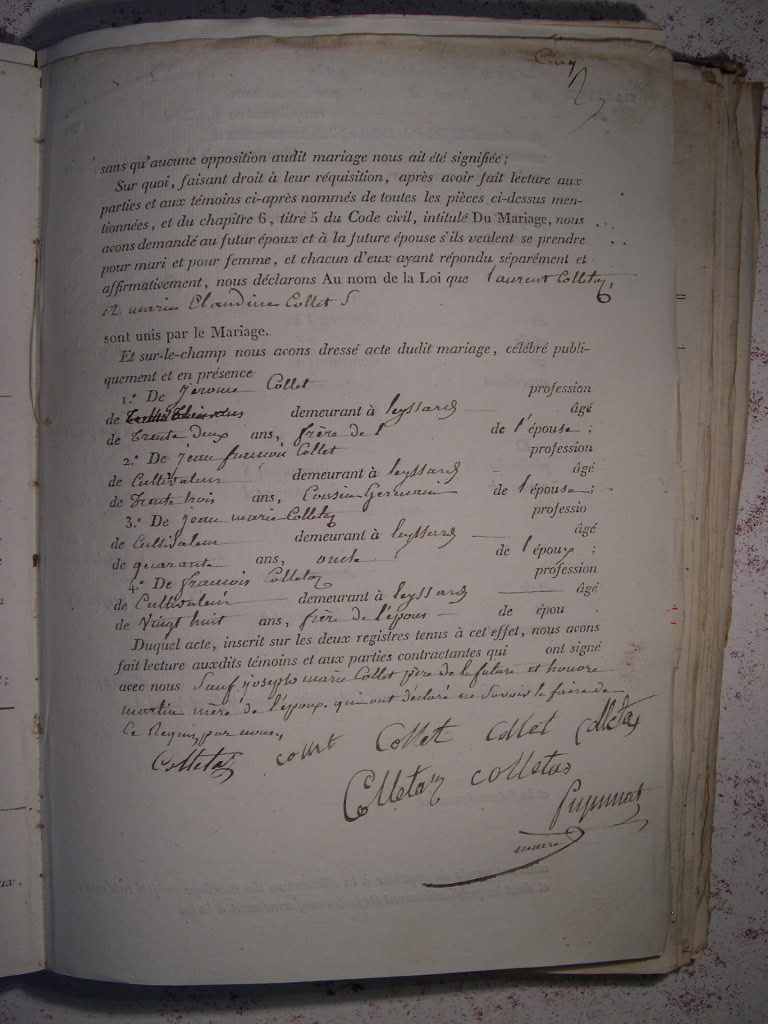 Cinq
sans qu'aucune opposition audit mariage nous ait été signifiée ;
Sur quoi, faisant droit à leur réquisition, après avoir fait lecture aux
parties et aux témoins ci-après nommés de toutes les pièces ci-dessus men-
tionnées, et du chapitre 6, titre 5 du Code civil, intitulé Du Mariage, nous
avons demandé au futur époux et à la future épouse s'ils veulent se prendre
pour mari et pour femme, et chacun d'eux ayant répondu séparément et
affirmativement, nous déclarons Au nom de la Loi que laurent Colletaz,
et marie Claudine Collet
sont unis par le Mariage.
Et sur-le-champ nous avons dressé acte dudit mariage, célébré publi-
quement et en présence
1.º De Jérome Collet profession
de demeurant à leyssard âgé
de trente deux ans, frère de l de l'épouse ;
2.º De jean françois Collet profession
de Cultivateur demeurant à leyssard âgé
de trente trois ans, Cousin Germain de l'épouse ;
3.º De jean marie Colletaz professio
de Cultivateur demeurant à leyssard âgé
de quarante ans, oncle de l'époux ;
4.º De françois Colletaz profession
de Cultivateur demeurant à leyssard âgé
de Vingt huit ans, frère de l'époux de épou .
Duquel acte, inscrit sur les deux registres tenus à cet effet, nous avons
fait lecture auxdits témoins et aux parties contractantes qui ont signé
avec nous Sauf joseph marie Collet père de la future et honore
martin mère de l'époux qui ont déclaré ne Savoir le faire de
Ce Requis par nous.
Colletaz Collet Collet Collet Colletaz
Colletaz Colletaz
maire